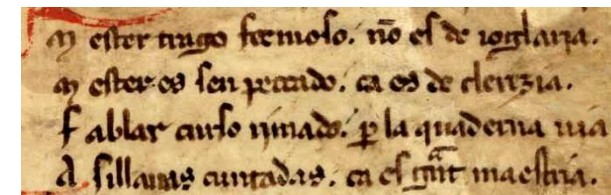 M ester trago fermoso. nō es de ioglaria.
M ester es sen peccado. ca es de clerezia.
F ablar curso rimado. p̲ la quaderna uia
A sillauas cuntadas. ca es gͣnt maestria.